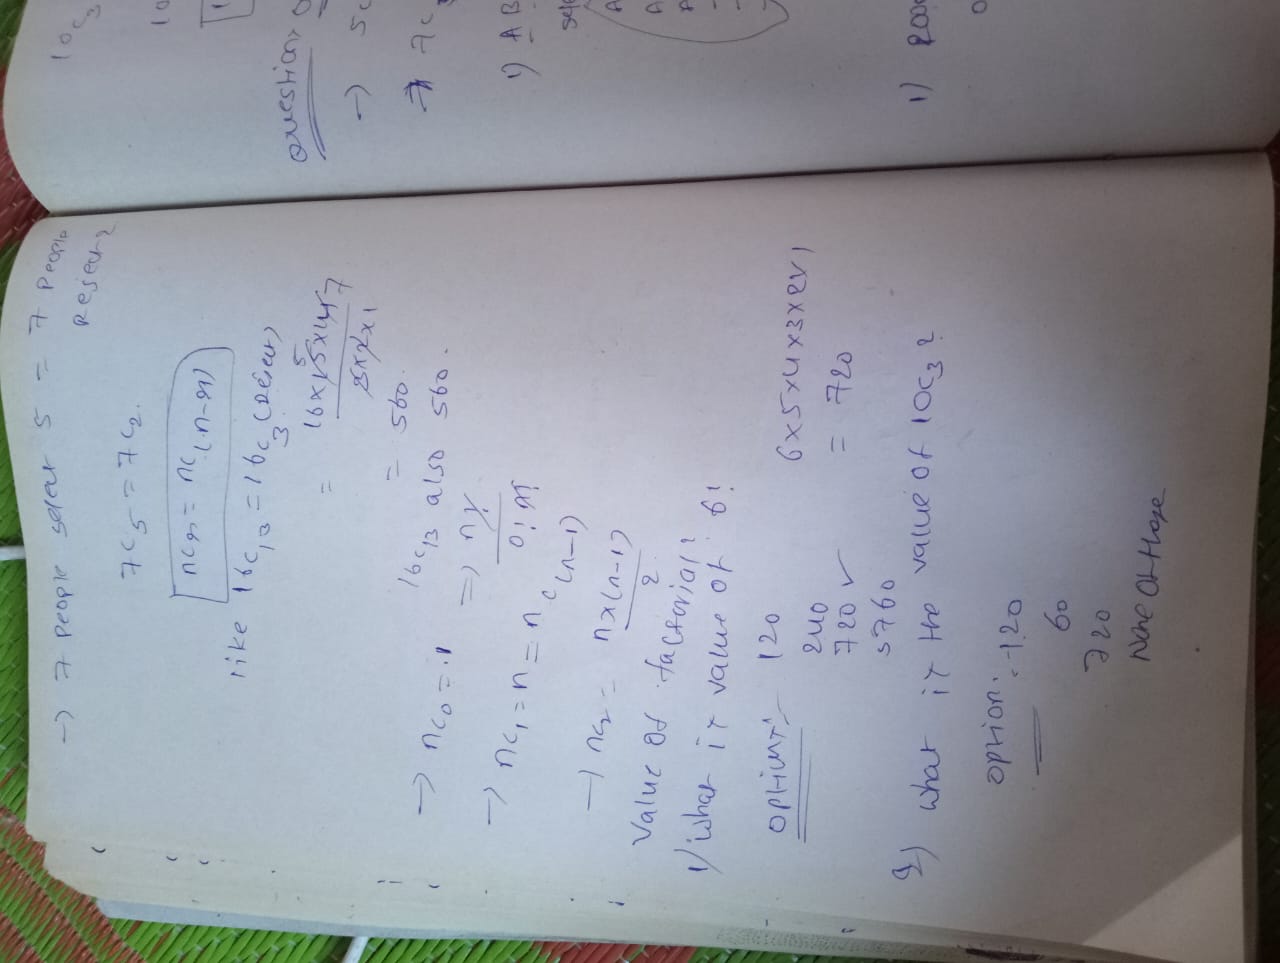 → 7 people select 5 = 7 people
Reject 2
7C5 = 7C2
nCr = nC(n-r)
like 16C13 = 16C3 (select)
= 16×15×14 7
3×2×1
= 560.
16C13 also 560.
→ nC0 = 1 ⇒ n!
0! n!
→ nC1 = n = nC(n-1)
→ nC2 = n×(n-1)
2
Value of factorial?
1) What is value of 6!
6×5×4×3×2×1
= 720
120
240
720 ✓
5760
2) What is the value of 10C3?
option :- 120
60
720
None of these
10C3
Question
1) AB